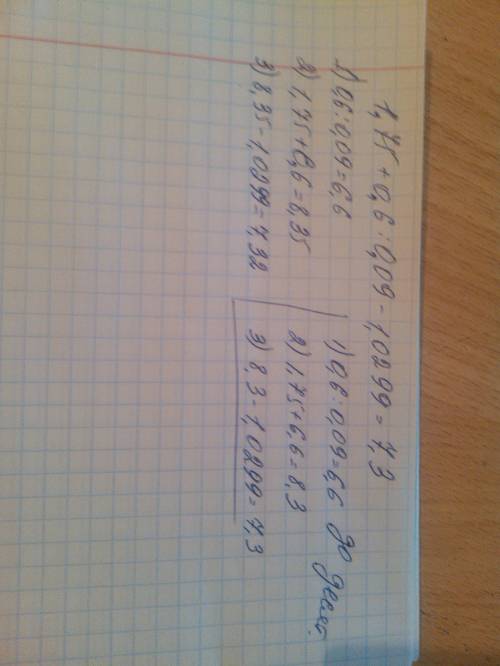 1,75 + 0,6 : 0,09 - 1,0299 = 7,3
1) 0,6 : 0,09 = 6,6
2) 1,75 + 6,6 = 8,35
3) 8,35 - 1,0299 = 7,32
1) 0,6 : 0,09 = 6,6 до
2) 1,75 + 6,6 = 8,3
3) 8,3 - 1,0299 = 7,3